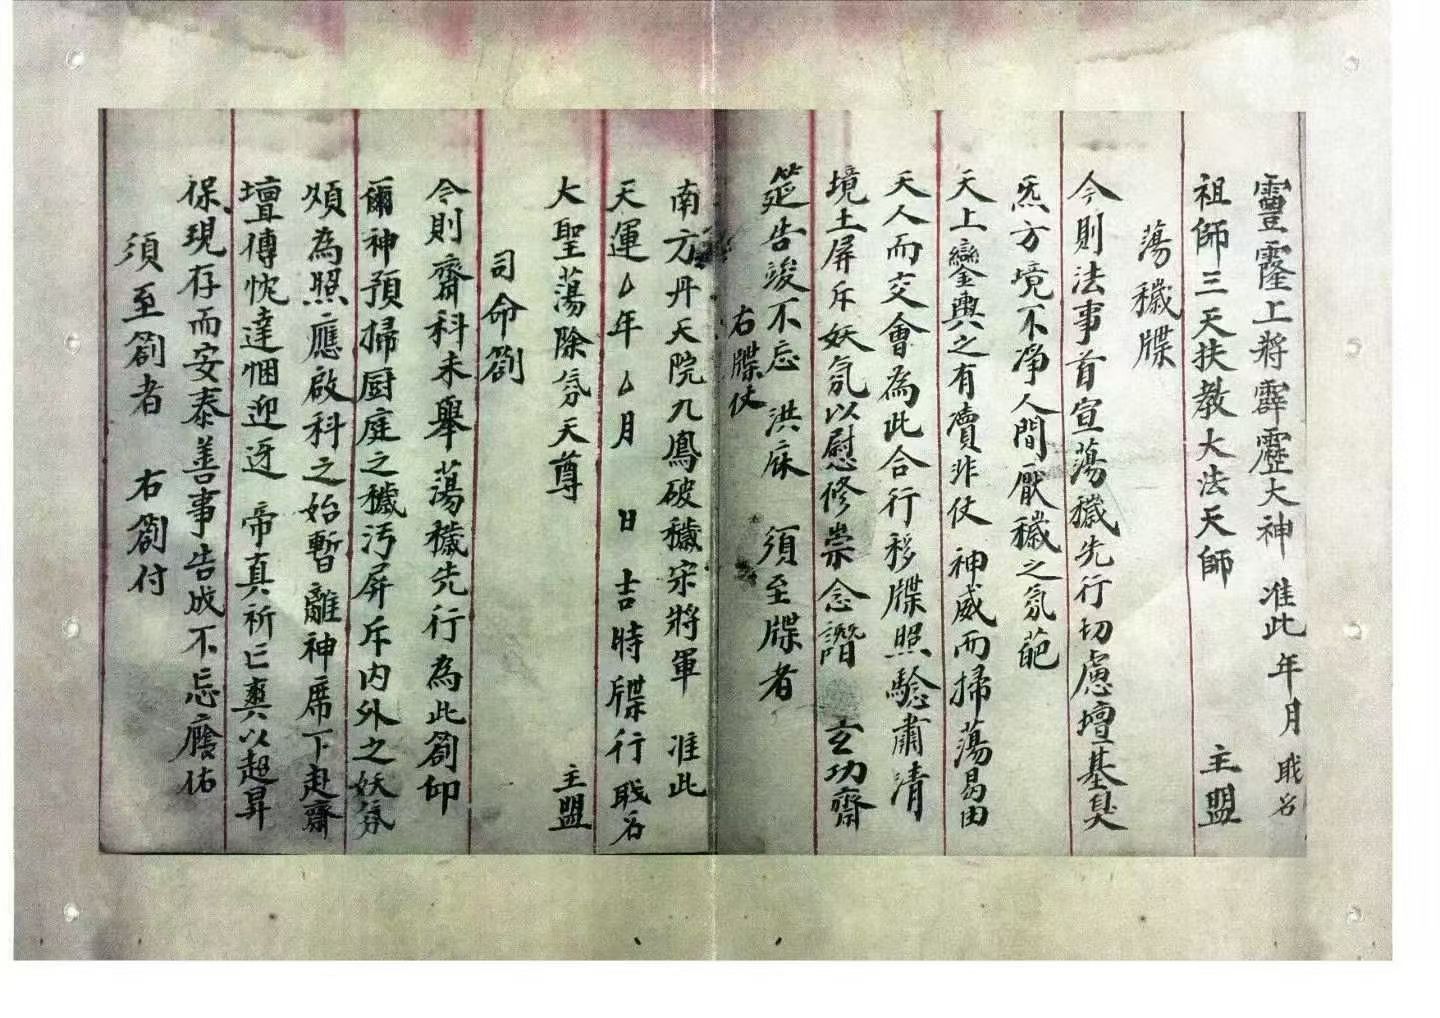 靈霳上將霹靂大神　准此　年月　職名
祖師三天扶教大法天師　主盟
蕩穢牒
今則法事首宣蕩穢先行切慮壇基臭
炁方境不净人間厭穢之氛葩
天上鑾輿之有瀆非仗　神威而掃蕩曷由
天人而交會為此合行移牒照驗肅清
境土屏斥妖氛以慰修崇念譖　玄功齋
筵告竣不忘　洪庥　須至牒者
右牒仗
南方丹天院九鳳破穢宋將軍　准此
天運厶年厶月　日　吉時牒行　職名
大聖蕩除氛天尊　主盟
司命劄
今則齋科未舉蕩穢先行為此劄仰
爾神預掃厨庭之穢污屏斥内外之妖氛
煩為照應啟科之始暫離神席下赴齋
壇傳忱達悃迎迓　帝真祈亡爽以超昇
保現存而安泰善事告成不忘廕佑
須至劄者　右劄付